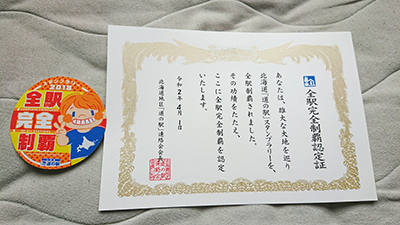 2018
スタンプラリー
全駅
完全
制覇
全駅完全制覇認定証
あなたは、雄大な大地を巡り
北海道「道の駅」スタンプラリーを、
全駅制覇されました。
その功績をたたえ、
ここに全駅完全制覇を認定
いたします。
令和2年4月1日
北海道地区「道の駅」連絡会会長